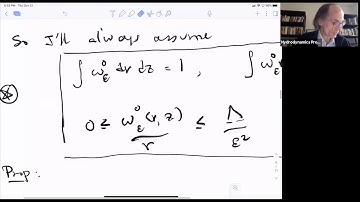 So I'll always assume
∫ ω_ε^0 dr dz = 1 , ∫ ω_ε^0
0 ≤ ω_ε^0 (r, z) / r ≤ Λ / ε^2
Prop :
Hydrodynamics Pro